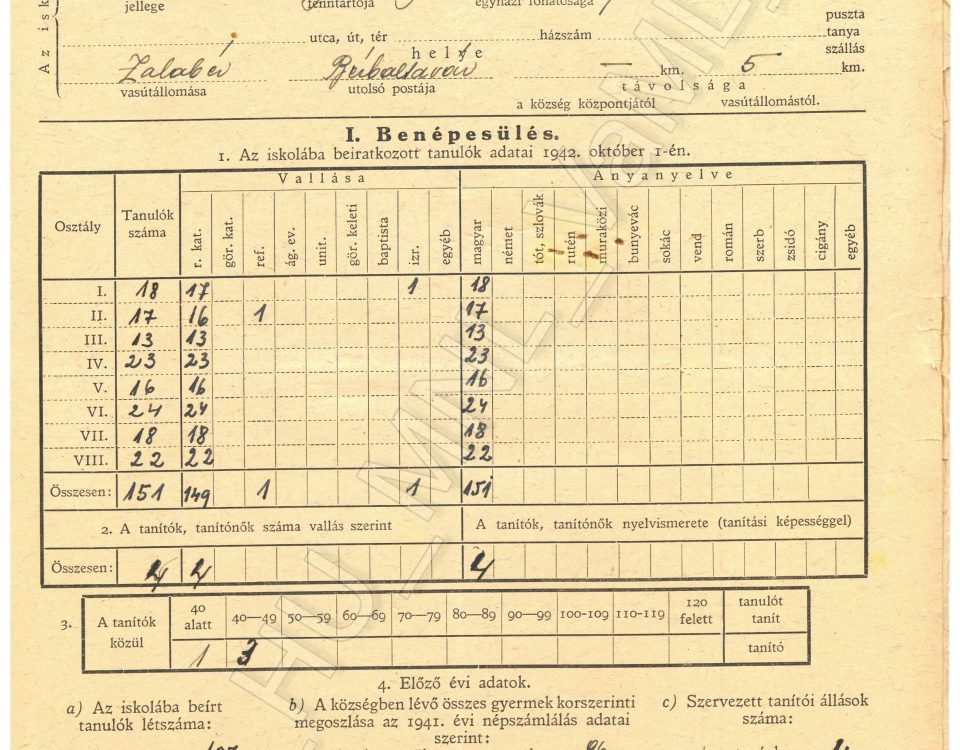 jellege fenntartója egyházi főhatósága
Az isk
puszta
utca, út, tér házszám tanya
helye szállás
Zalabér 5
km. km.
vasútállomása utolsó postája távolsága
a község központjától vasútállomástól.
I. Benépesülés.
1. Az iskolába beiratkozott tanulók adatai 1942. október 1-én.
Vallása Anyanyelve
Osztály Tanulók száma r. kat. gör. kat. ref. ág. ev. unit. gör. keleti baptista izr. egyéb magyar német tót, szlovák rutén muraközi bunyevác sokác vend román szerb zsidó cigány egyéb
I. 18 17 1 18
II. 17 16 1 17
III. 13 13 13
IV. 23 23 23
V. 16 16 16
VI. 24 24 24
VII. 18 18 18
VIII. 22 22 22
Összesen: 151 149 1 1 151
2. A tanítók, tanítónők száma vallás szerint A tanítók, tanítónők nyelvismerete (tanítási képességgel)
Összesen: 4 4 4
3. A tanítók közül 40 alatt 40—49 50—59 60—69 70—79 80—89 90—99 100-109 110-119 120 felett tanulót tanít
1 3 tanító
4. Előző évi adatok.
a) Az iskolába beírt tanulók létszáma:
b) A községben lévő összes gyermek korszerinti megoszlása az 1941. évi népszámlálás adatai szerint:
c) Szervezett tanítói állások száma:
HU_MNL_VaML